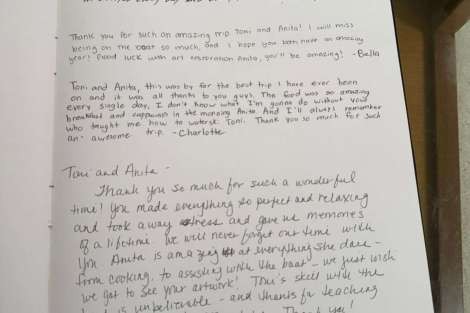 Thank you for such an amazing trip Toni and Anita! I will miss
being on the boat so much, and I hope you both have an amazing
year! Good luck with art Anita, you'll be amazing! -Bella
Toni and Anita, this was by far the best trip I have ever been
on and it was all thanks to you guys. The food was so amazing
every single day, I don't know what I'm gonna do without your
breakfast and cappuccinos in the morning Anita. And I'll always remember
who taught me how to waterski Toni. Thank you so much for such
an awesome trip. -Charlotte
Toni and Anita -
Thank you so much for such a wonderful
time! You made everything so perfect and relaxing
and took away stress and gave us memories
of a lifetime. We will never forget our time with
you. Anita is amazing at everything she does -
from cooking, to assisting with the boat - we just wish
we got to see your artwork! Toni's skill with the
is unbelievable - and thanks for teaching
Thank you!